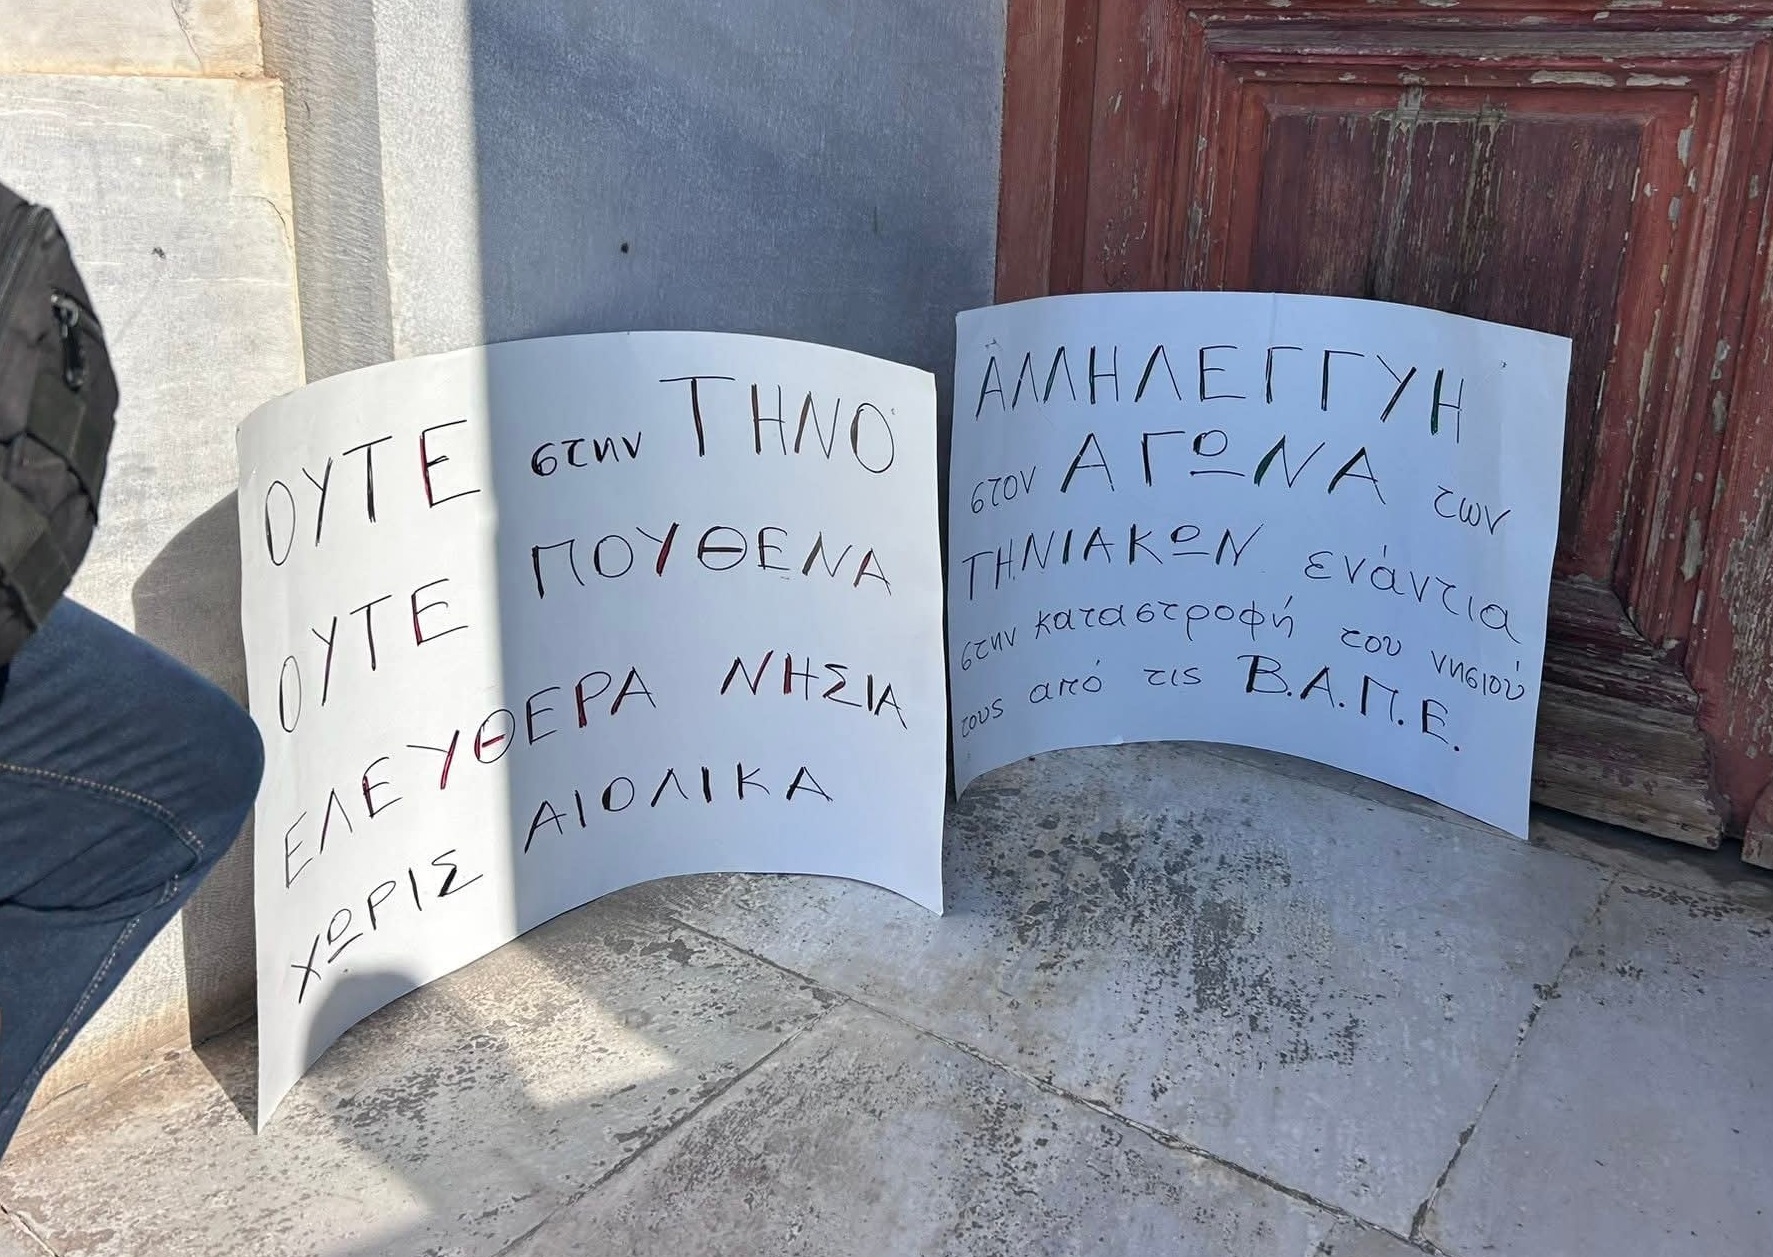 ΟΥΤΕ στην ΤΗΝΟ
ΟΥΤΕ ΠΟΥΘΕΝΑ
ΕΛΕΥΘΕΡΑ ΝΗΣΙΑ
ΧΩΡΙΣ ΑΙΟΛΙΚΑ
ΑΛΛΗΛΕΓΓΥΗ
στον ΑΓΩΝΑ των
ΤΗΝΙΑΚΩΝ ενάντια
στην καταστροφή του νησιού
τους από τις Β.Α.Π.Ε.